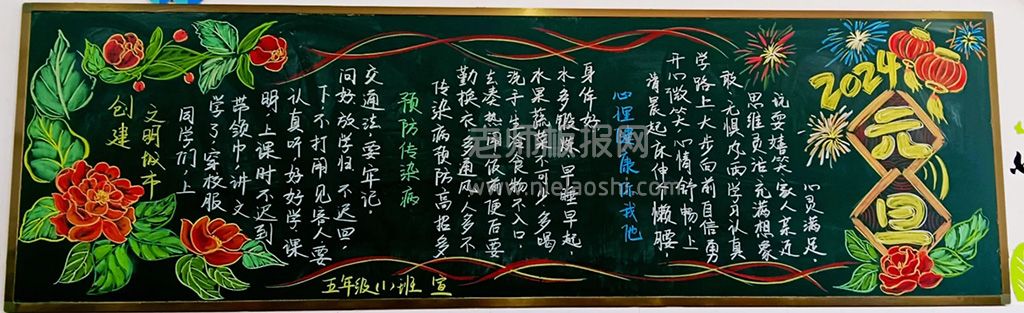 创建
文明城市
同学们,上
学了,穿校服
带领巾,讲文
明,上课时不迟到
认真听,好好学,课
下不打闹,见客人要
问好,放学归,不迟回,
交通法,要牢记,
预防传染病
传染病,预防高招多
勤换衣,多通风,人多不
去凑热闹,饭前便后要
洗手,生食物不入口,
水果蔬菜不可少,多喝
水,多锻炼,早睡早起,
身体好
心理健康你我他
清晨起床伸懒腰,
开心微笑,心情舒畅,上
学路上大步向前,自信勇
敢,无惧风雨,学习认真
思维灵活,充满想象
说耍嬉笑,家人亲近
心灵满足.
2024
元旦
五年级(1)班 宣
老师板报网
www.mielaoshi.com